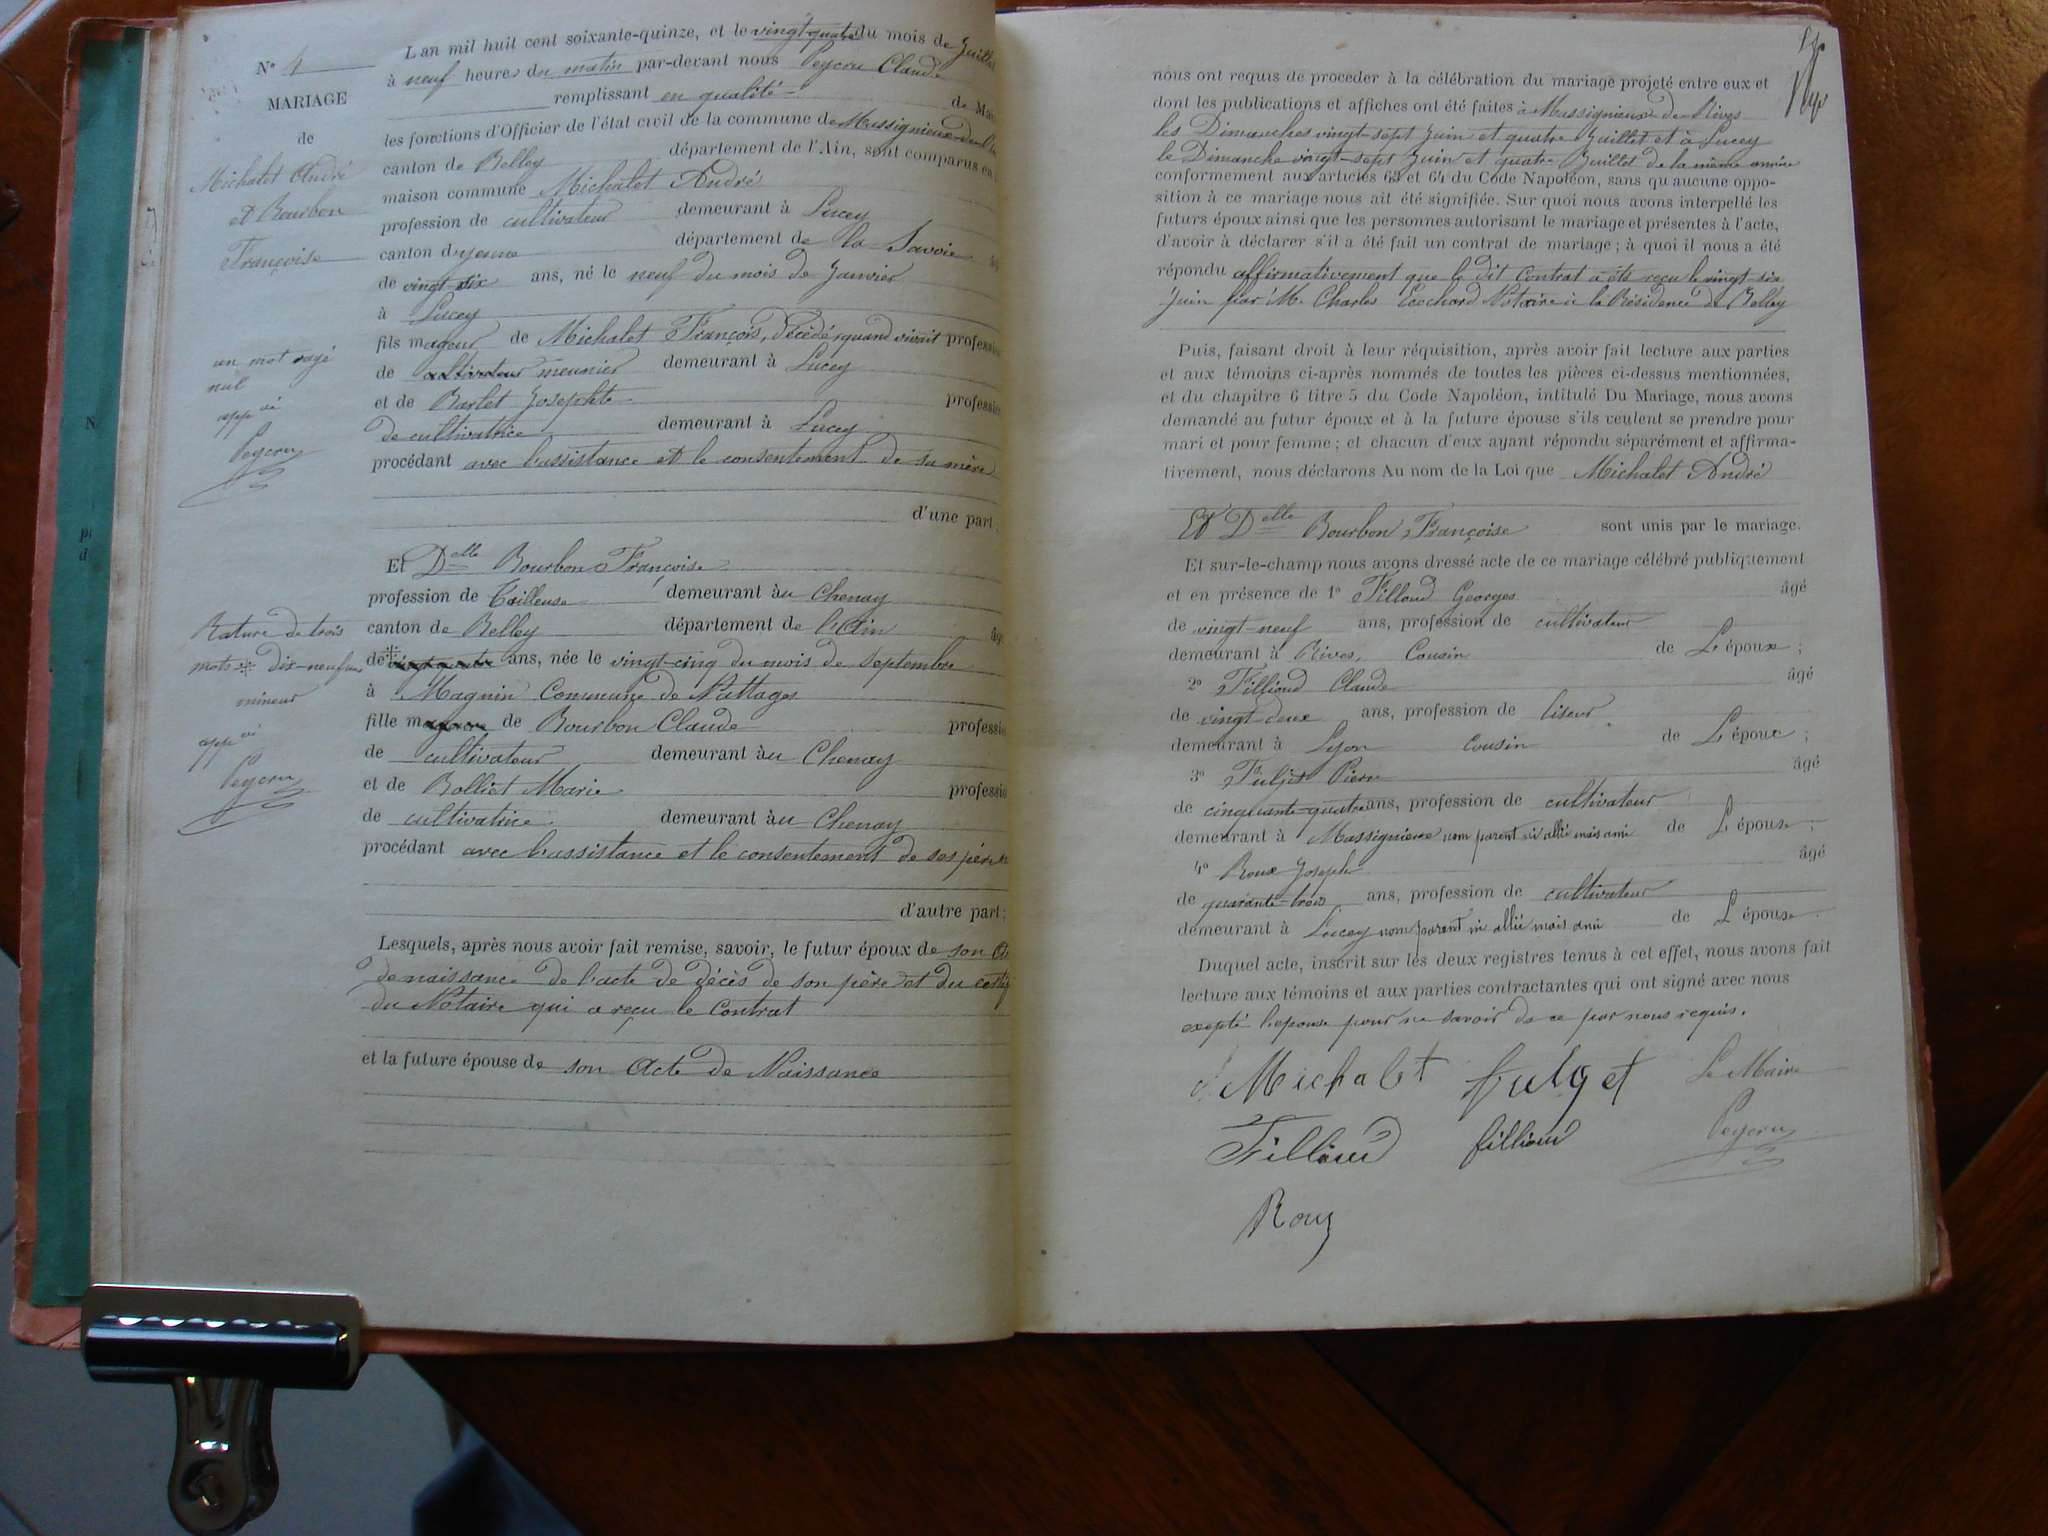 N° 4
MARIAGE
de
Michalet André
et Bourbon
Françoise
un mot rayé
nul
app vé
Peycru
Rature de trois
mots * dix-neuf ans
mineur
app vé
Peycru
L'an mil huit cent soixante-quinze, et le vingt quatre du mois de Juillet
à neuf heures du matin par-devant nous Peycru Claude
remplissant en qualité de
les fonctions d'Officier de l'état civil de la commune de Massignieu de
canton de Belley département de l'Ain, sont comparus en
maison commune Michalet André
profession de cultivateur demeurant à Lucey
canton d'yenne département de la Savoie
de vingt six ans, né le neuf du mois de Janvier
à Lucey
fils mageur de Michalet François, décédé, quand vivait profession
de cultivateur meunier demeurant à Lucey
et de Barlet Josephte profession
de cultivatrice demeurant à Lucey
procédant avec l'assistance et le consentement de sa mère
d'une part;
Et Delle Bourbon Françoise
profession de Tailleuse demeurant au Chenay
canton de Belley département de l'Ain
de * ans, née le vingt-cinq du mois de septembre
à Magnin Commune de Nattages
fille mageure de Bourbon Claude profession
de cultivateur demeurant au Chenay
et de Rolliet Marie profession
de cultivatrice demeurant au Chenay
procédant avec l'assistance et le consentement de ses père
d'autre part;
Lesquels, après nous avoir fait remise, savoir, le futur époux de son
de naissance de l'acte de décès de son père et du
du Notaire qui a reçu le Contrat
et la future épouse de son Acte de Naissance
nous ont requis de proceder à la célébration du mariage projeté entre eux et
dont les publications et affiches ont été faites à Massignieux de Rives
les Dimanches vingt-sept Juin et quatre Juillet et à Lucey
le Dimanche vingt-sept Juin et quatre Juillet de la même année
conformement aux articles 63 et 64 du Code Napoléon, sans qu'aucune oppo-
sition à ce mariage nous ait été signifiée. Sur quoi nous avons interpellé les
futurs époux ainsi que les personnes autorisant le mariage et présentes à l'acte,
d'avoir à déclarer s'il a été fait un contrat de mariage; à quoi il nous a été
répondu affirmativement que le dit Contrat a été reçu le vingt six
Juin par M. Charles Notaire à la Résidence de Belley
Puis, faisant droit à leur réquisition, après avoir fait lecture aux parties
et aux témoins ci-après nommés de toutes les pièces ci-dessus mentionnées,
et du chapitre 6 titre 5 du Code Napoléon, intitulé Du Mariage, nous avons
demandé au futur époux et à la future épouse s'ils veulent se prendre pour
mari et pour femme; et chacun d'eux ayant répondu séparément et affirma-
tivement, nous déclarons Au nom de la Loi que Michalet André
Et Delle Bourbon Françoise sont unis par le mariage.
Et sur-le-champ nous avons dressé acte de ce mariage célébré publiquement
et en présence de 1° Filloud Georges âgé
de vingt-neuf ans, profession de cultivateur
demeurant à Rives, Cousin de L'époux;
2° Fillioud Claude âgé
de vingt deux ans, profession de liseur
demeurant à Lyon cousin de L'épouc;
3° Fulget Pierre âgé
de cinquante-quatre ans, profession de cultivateur
demeurant à Massignieux nom parent ni allié mais ami de L'épouse;
4° Roux Joseph âgé
de quarante-trois ans, profession de cultivateur
demeurant à Lucey nom parent ni allié mais ami de L'épouse
Duquel acte, inscrit sur les deux registres tenus à cet effet, nous avons fait
lecture aux témoins et aux parties contractantes qui ont signé avec nous
exepté l'epouse pour ne savoir de ce par nous requis.
Michalet fulget Le Maire
Filloud fillioud Peycru
Roux